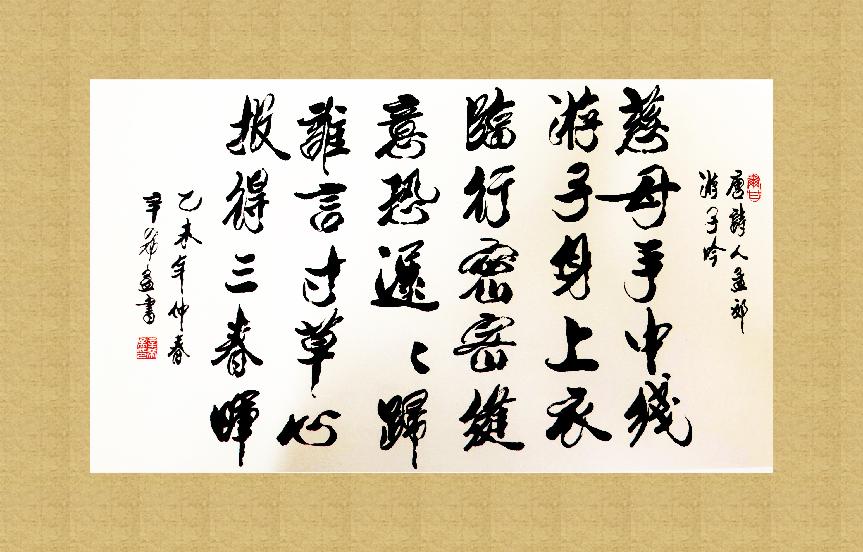 唐詩人孟郊
游子吟
慈母手中綫
游子身上衣
臨行密密縫
意恐遲〻歸
難言寸草心
报得三春暉
乙未年仲春
辛書